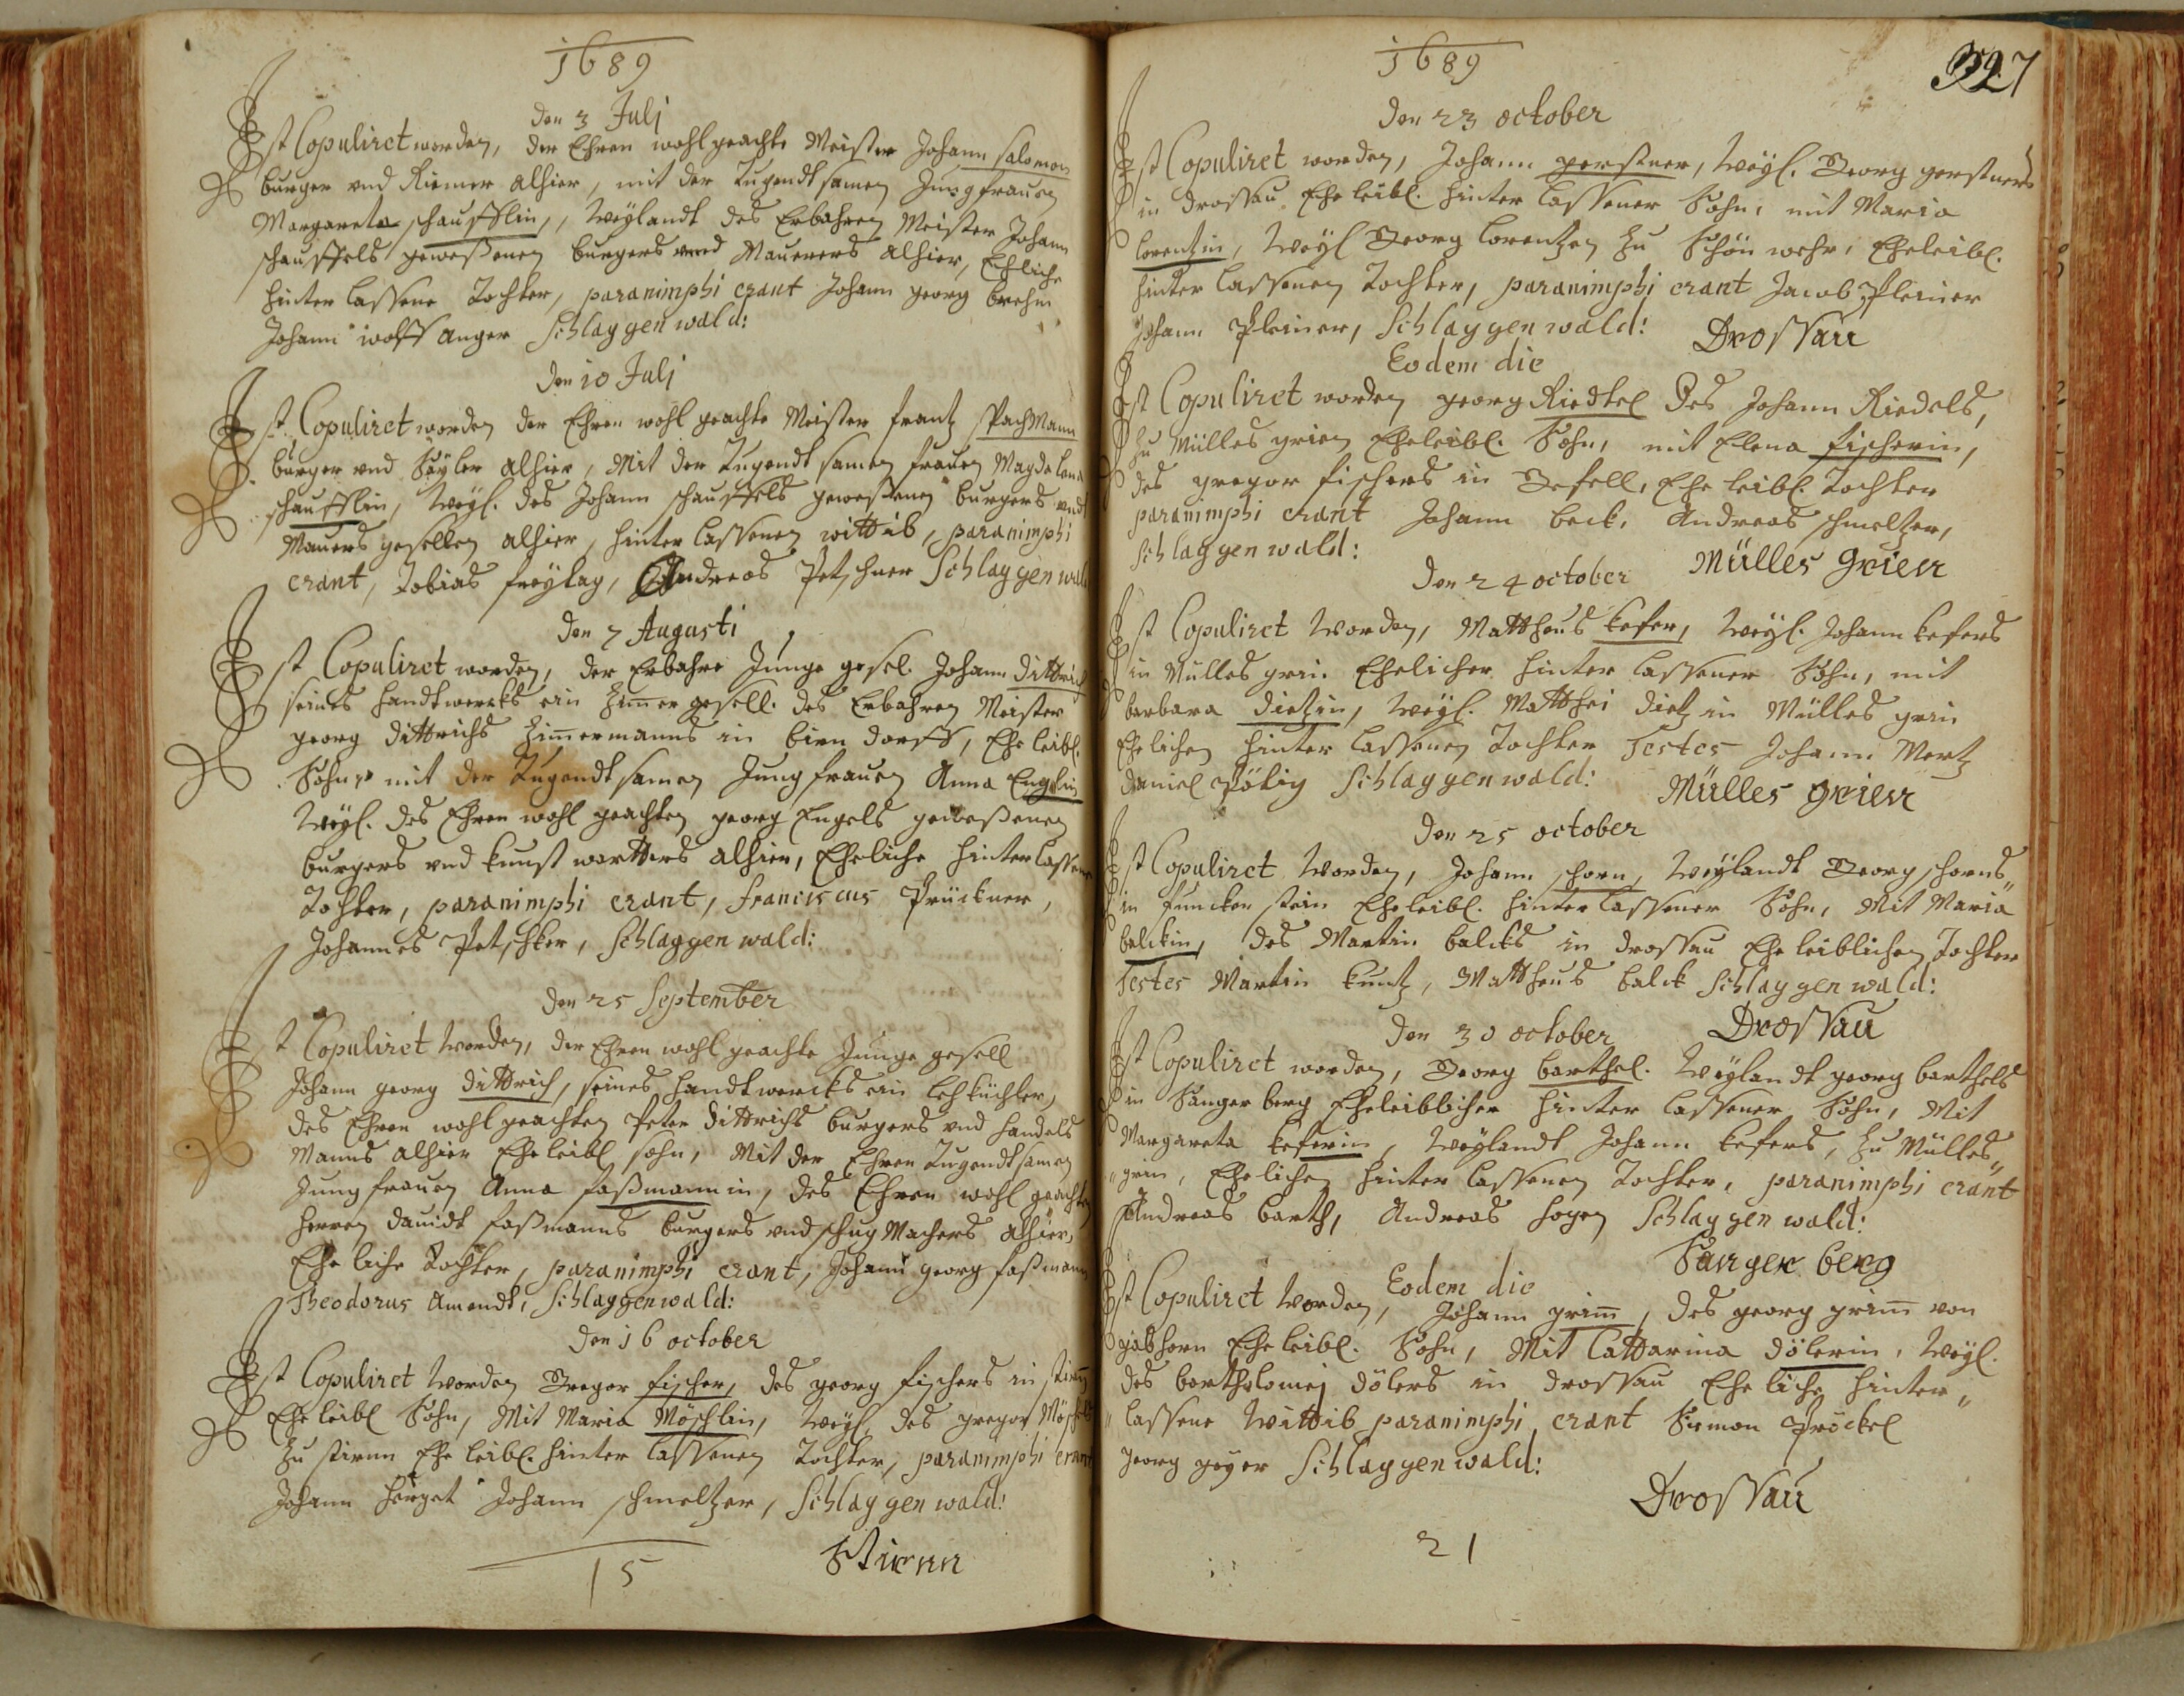 1689
den 3 Julj
Ist Copuliret worden, der Ehren wohl geachte Meister Johann Salomon
burger vnd Riemer alhier, mit der Tugendtsamen Jungfrauen
Margareta schaufflin, Weylandt des Erbahren Meister Johann
schauffels geweßenen burgers vnd Mauerers alhier, Ehliche
hinter lassene Tochter, paranimphi erant Johann georg brehm
Johann wolff anger Schlaggenwald:
den 10 Julj
Ist Copuliret worden der Ehren wohl geachte Meister frantz spachMann
burger vnd Seyler alhier, Mit der Tugendtsamen frauen Magdalena
schaufflin, Weyl. des Johann schauffels geweßenen burgers vnd
Mauers gesellen alhier, hinter lassenen wittib, paranimphi
erant, Tobias freytag, Andreas Petschner Schlaggenwald
den 7 Augusti
Ist Copuliret worden, der Erbahre Junge gesel. Johann dittrich
seines handtwercks ein Zimer gesell. des Erbahren Meister
georg dittrichs Zimermanns in birn dorff, Ehe leibl.
Sohn, mit der Tugendtsamen Jungfrauen Anna Englin
Weyl. des Ehren wohl geachten georg Engels geweßenen
burgers vnd kunst wartters alhier, Eheliche hinterlassene
Tochter, paranimphi erant, franciscus Prückner,
Johannes Petschker, Schlaggenwald:
den 25 September
Ist Copuliret Worden, der Ehren wohl geachte Junge gesell
Johann georg dittrich, seines handtwercks ein lehküchler,
des Ehren wohl geachten Peter dittrichs burgers vnd handels
Manns alhier Eheleibl sohn, Mit der Ehren Tugendtsamen
Jungfrauen Anna faßmannin, des Ehren wohl geachten
herren dauidt faßmanns burgers vnd schug Machers alhier,
Eheliche Tochter, paranimphi erant, Johann georg faßmann
Theodorus Amendt, Schlaggenwald:
den 16 october
Ist Copuliret Worden Gregor fischer, des georg fischers in stirn
Eheleibl Sohn, Mit Maria Möschlin, Weyl. des gregor Möschls
zu stirnn Ehe leibl. hinter lassenen Tochter, paranimphi erant
Johann herget Johann schmeltzer, Schlaggenwald:
Stirnn
15
1689
327
den 23 october
Ist Copuliret worden, Johann gerstner, Weyl. Georg gerstners
in drossau Eheleibl. hinter lassener Sohn, mit Maria
lorentzin, Weyl Georg lorentzen zu Schön wehr, Eheleibl.
hinter lassenen Tochter, paranimphi erant Jacob Pleiner
Johann Pleiner, Schlaggenwald:
Drossau
Eodem die
Ist Copuliret worden georg Riedtel des Johann Riedels,
zu Mülles grien Eheleibl. Sohn, mit Elena fischerin,
des gregor fischers in Gefell, Ehe leibl. Tochter
paranimphi erant Johann beck, Andreas schmeltzer,
Schlaggenwald:
Mülles Grien
den 24 october
Ist Copuliret Worden, Mattheus kefer, Weyl. Johann kefers
in Mulles grin Ehelicher hinter lassener Sohn, mit
barbara dietzin, Weyl. Matthei dietz in Mülles grin
Ehelichen hinter lassenen Tochter Testes Johann Mertz
daniel Pötig Schlaggenwald:
Mülles grien
den 25 october
Ist Copuliret Worden, Johann schorn, Weylandt Georg schorns
in funcken stein Eheleibl. hinter lassener Sohn, Mit Maria
balckin, des Martin balcks in drossau Ehe leiblichen Tochter
Testes Martin kuntz, Mattheus balck Schlaggenwald:
Drossau
den 30 october
Ist Copuliret worden, Georg barthel. Weylandt georg barthels
in Sanger berg Eheleiblicher hinter lassener Sohn, Mit
Margareta keferin, Weylandt Johann kefers, zu Mülles„
„grin, Ehelichen hinter lassenen Tochter, paranimphi erant
Andreas barth, Andreas hogen Schlaggenwald:
Sanger berg
Eodem die
Ist Copuliret Worden, Johann grim, des georg grim von
gabhorn Eheleibl. Sohn, Mit Cattarina dölerin, Weyl.
des bartholomej dölers in drossau Eheliche hinter„
„lassene Wittib paranimphi erant Simon Pröckel
Georg geyer Schlaggenwald:
Drossau
21